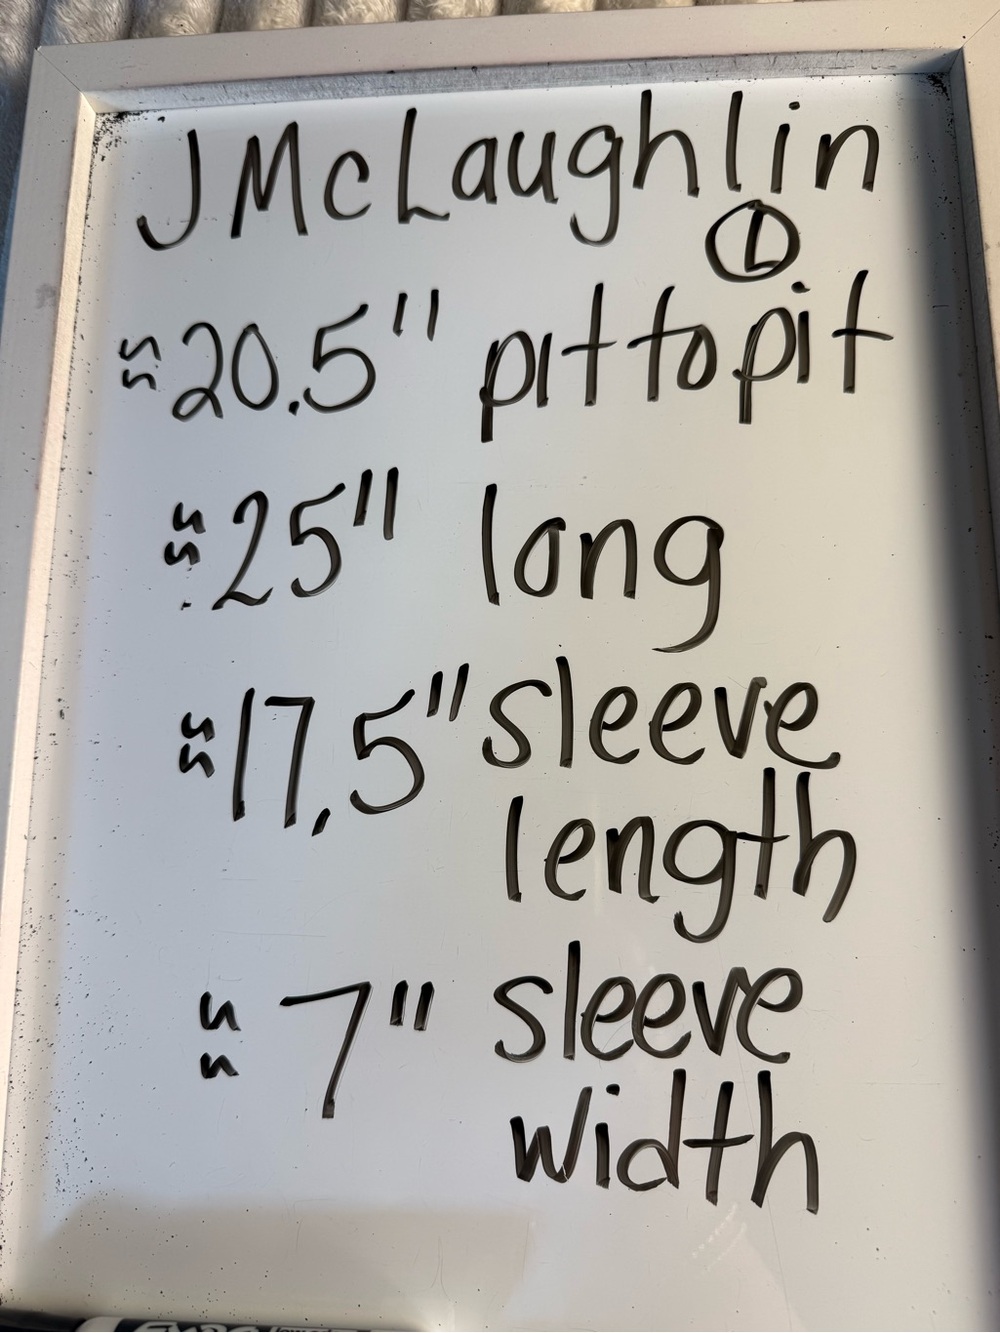 J McLaughlin
L
≈20.5" pit to pit
≈25" long
≈17.5" sleeve
length
≈7" sleeve
width